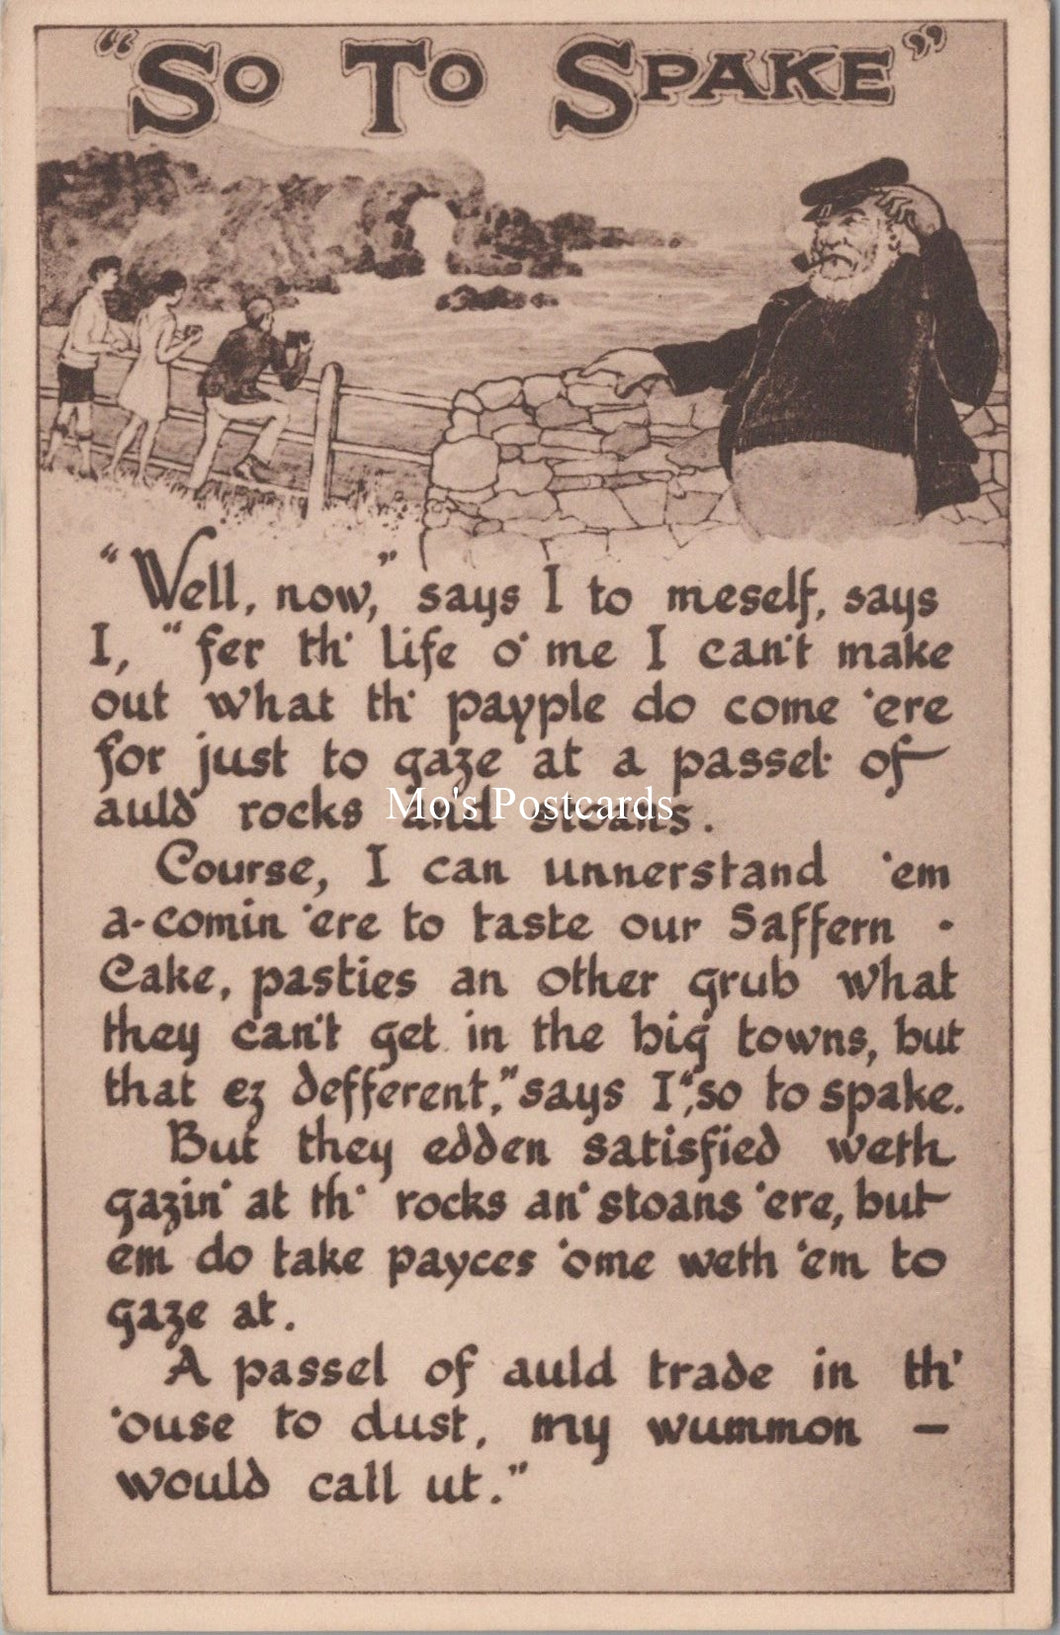 "So To Spake"
"Well, now," says I to meself, says
I, "fer th' life o' me I can't make
out what th' payple do come 'ere
for just to gaze at a passel of
auld rocks and stoans.
Mo's Postcards
Course, I can unnerstand 'em
a-comin 'ere to taste our Saffern -
Cake, pasties an other grub what
they can't get in the big towns, but
that ez defferent," says I, "so to spake.
But they edden satisfied weth
gazin' at th' rocks an' stoans 'ere, but
em do take payces 'ome weth 'em to
gaze at.
A passel of auld trade in th'
'ouse to dust, my wummon –
would call ut."